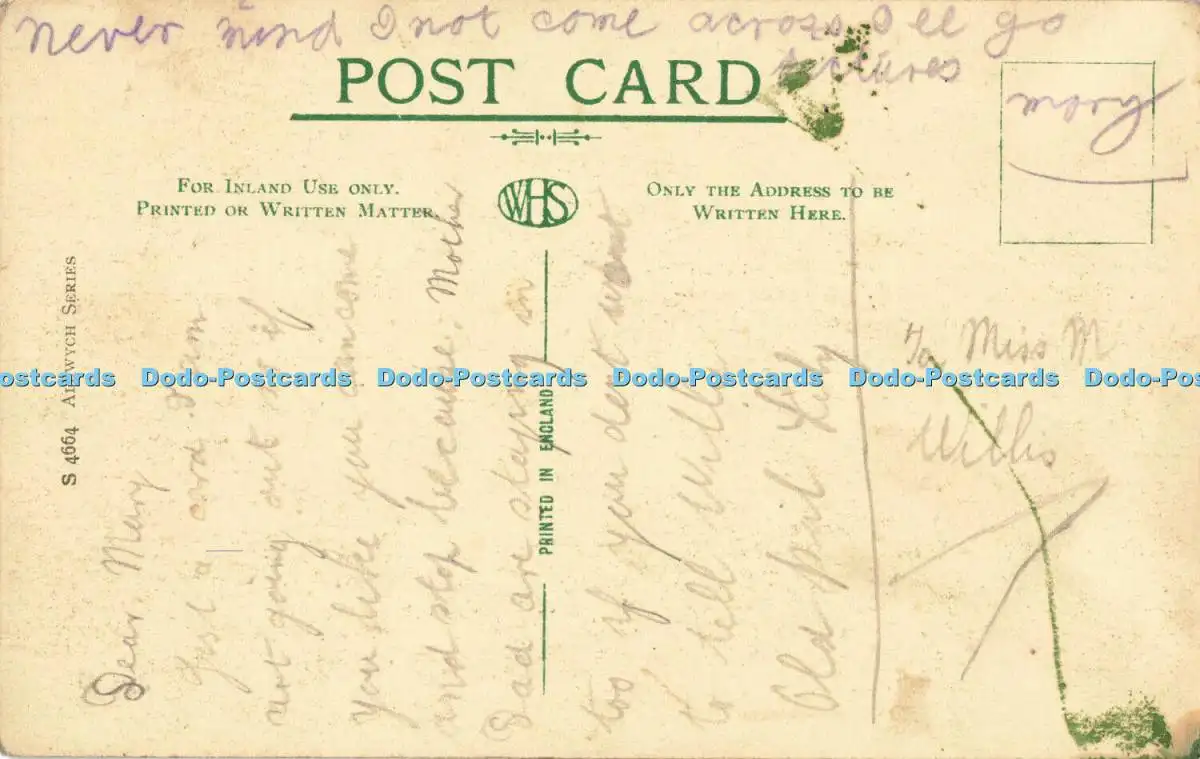 never mind I not come across I ll go
pictures
POST CARD
Mary
FOR INLAND USE ONLY.
PRINTED OR WRITTEN MATTER.
WHS
ONLY THE ADDRESS TO BE
WRITTEN HERE.
S 4664 ALDWYCH SERIES
PRINTED IN ENGLAND
Dear Mary
Just a card I am
not going out so if
you like you can come
and stop because Mother
Dad are staying in
too if you dont want
to tell Willie
Old pal Lily
To Miss M
Willis
Dodo-Postcards Dodo-Postcards Dodo-Postcards Dodo-Postcards